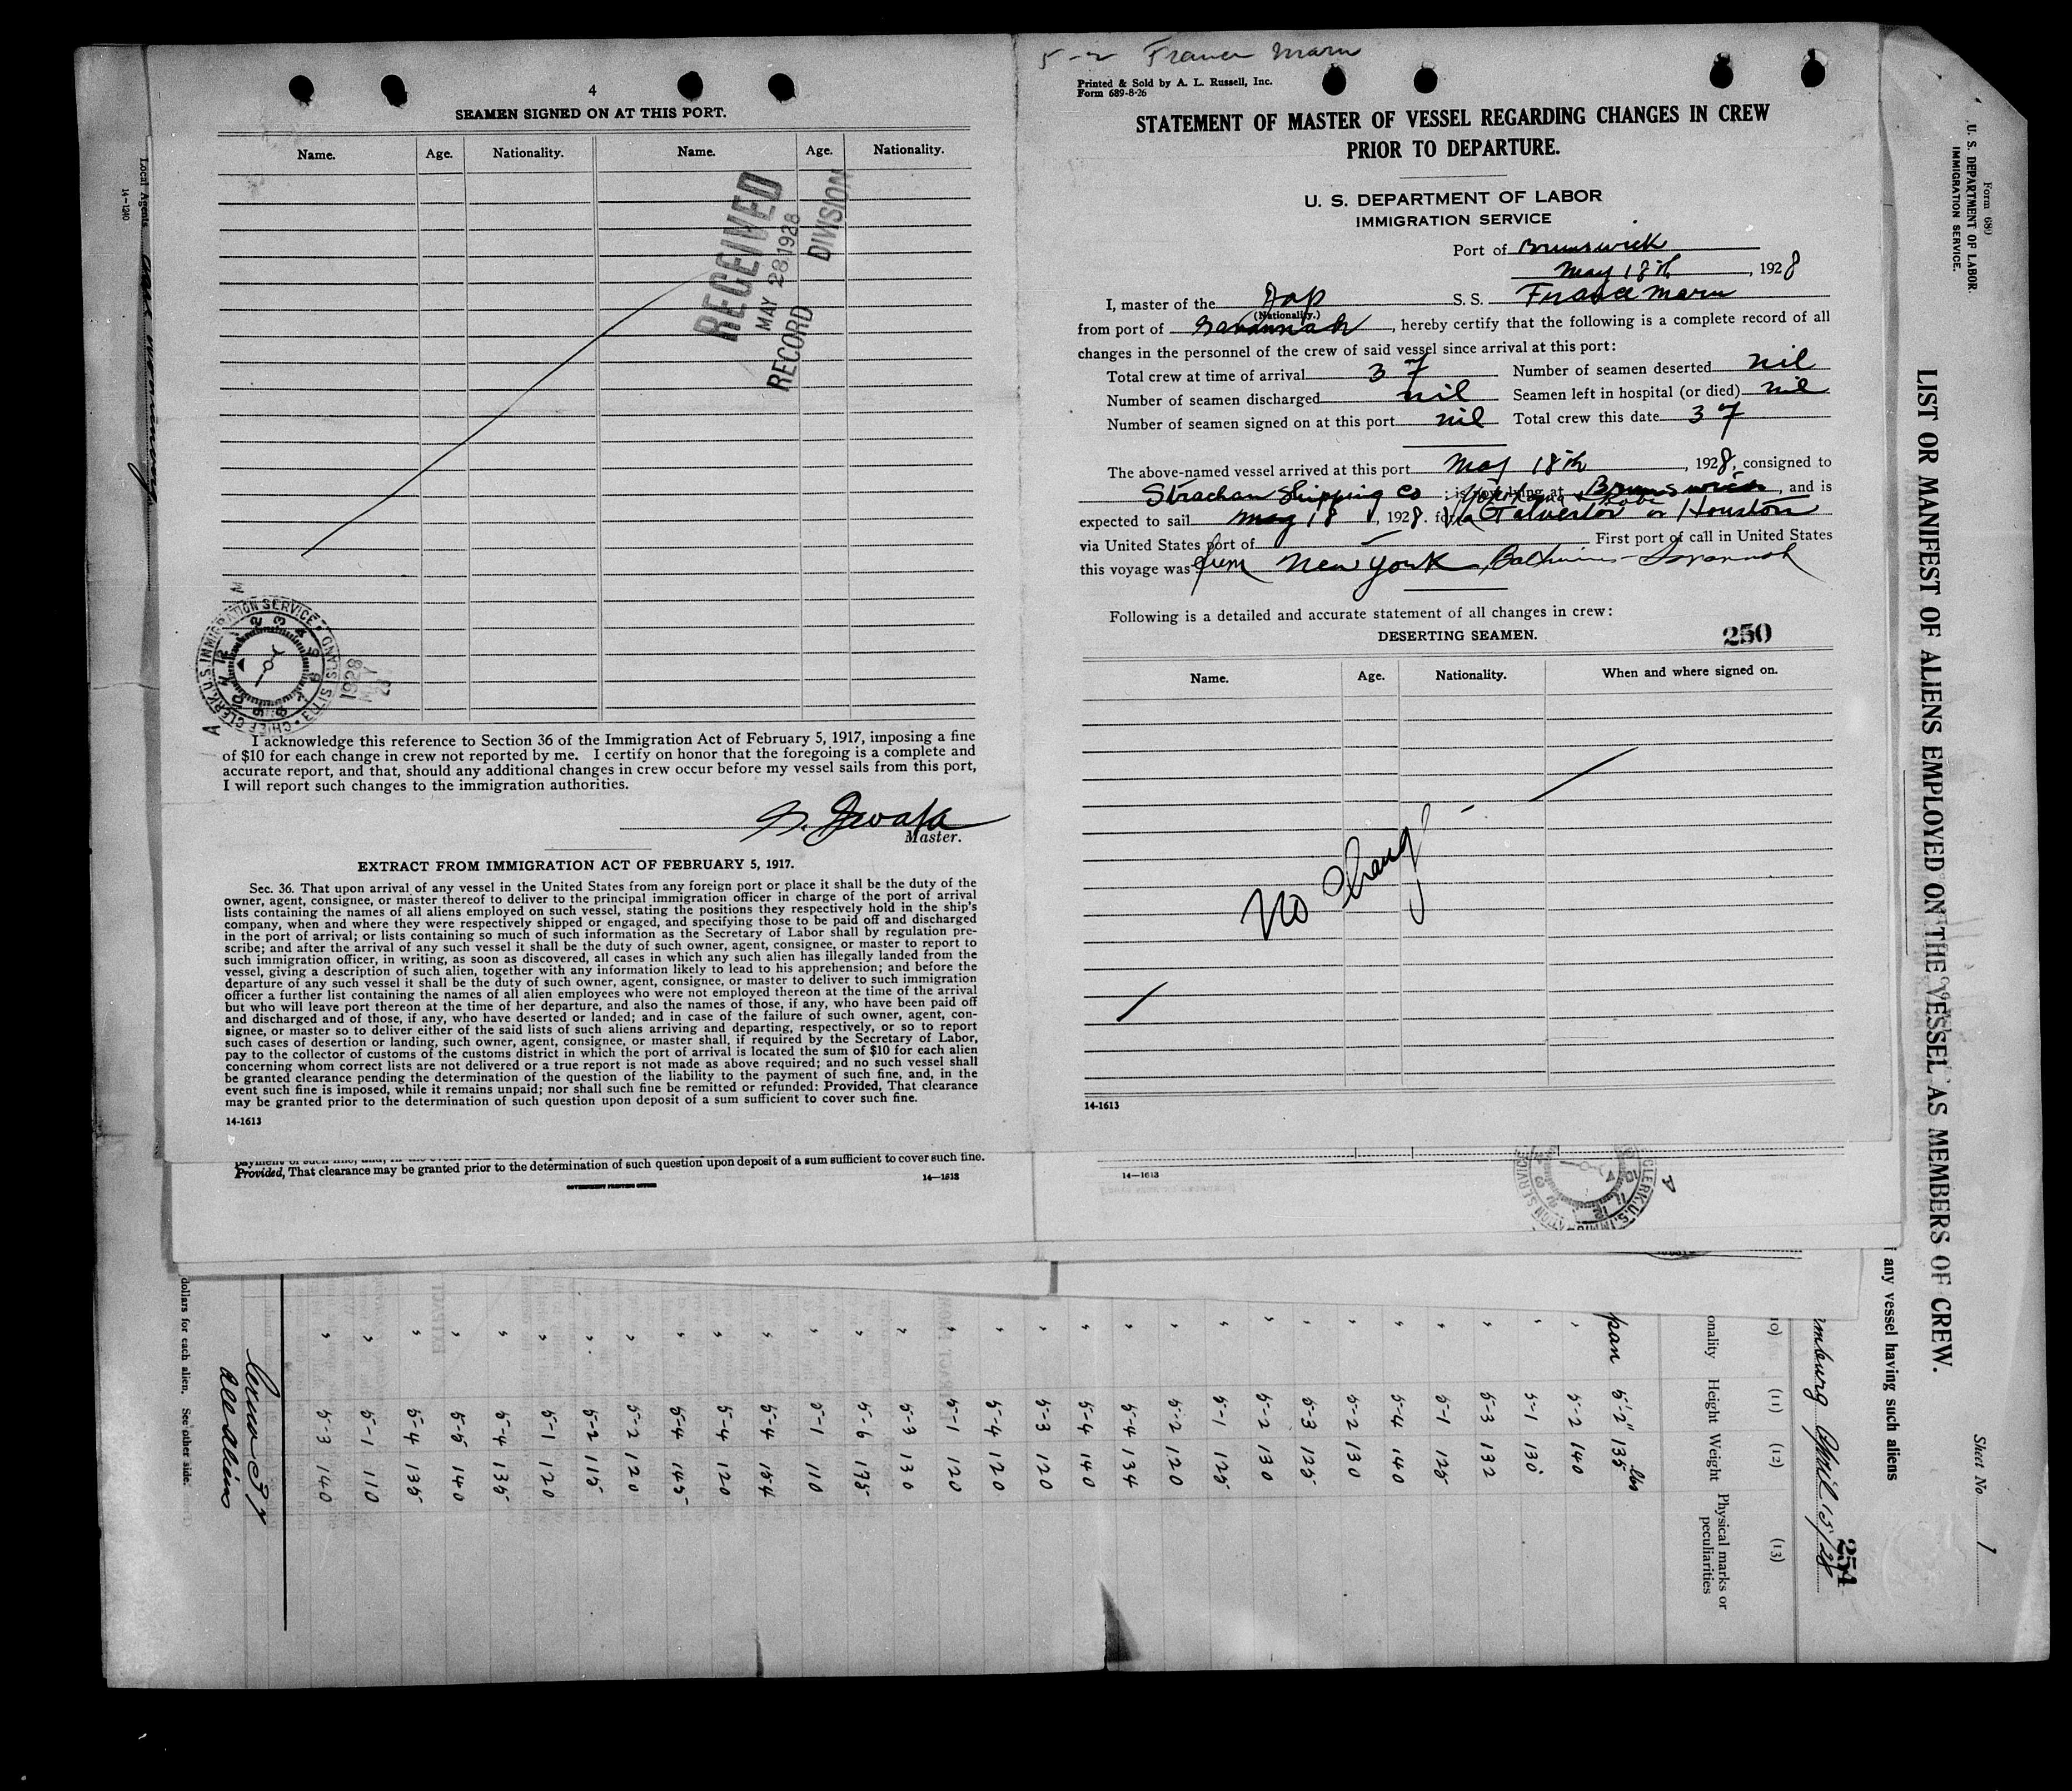 4
SEAMEN SIGNED ON AT THIS PORT.
Name. Age. Nationality. Name. Age. Nationality.
RECEIVED
MAY 28 1928
RECORD DIVISION
CHIEF CLERK, U.S. IMMIGRATION SERVICE ELLIS ISLAND
1928
MAY
I acknowledge this reference to Section 36 of the Immigration Act of February 5, 1917, imposing a fine
of $10 for each change in crew not reported by me. I certify on honor that the foregoing is a complete and
accurate report, and that, should any additional changes in crew occur before my vessel sails from this port,
I will report such changes to the immigration authorities.
Master.
EXTRACT FROM IMMIGRATION ACT OF FEBRUARY 5, 1917.
Sec. 36. That upon arrival of any vessel in the United States from any foreign port or place it shall be the duty of the
owner, agent, consignee, or master thereof to deliver to the principal immigration officer in charge of the port of arrival
lists containing the names of all aliens employed on such vessel, stating the positions they respectively hold in the ship's
company, when and where they were respectively shipped or engaged, and specifying those to be paid off and discharged
in the port of arrival; or lists containing so much of such information as the Secretary of Labor shall by regulation pre-
scribe; and after the arrival of any such vessel it shall be the duty of such owner, agent, consignee, or master to report to
such immigration officer, in writing, as soon as discovered, all cases in which any such alien has illegally landed from the
vessel, giving a description of such alien, together with any information likely to lead to his apprehension; and before the
departure of any such vessel it shall be the duty of such owner, agent, consignee, or master to deliver to such immigration
officer a further list containing the names of all alien employees who were not employed thereon at the time of the arrival
but who will leave port thereon at the time of her departure, and also the names of those, if any, who have been paid off
and discharged and of those, if any, who have deserted or landed; and in case of the failure of such owner, agent, con-
signee, or master so to deliver either of the said lists of such aliens arriving and departing, respectively, or so to report
such cases of desertion or landing, such owner, agent, consignee, or master shall, if required by the Secretary of Labor,
pay to the collector of customs of the customs district in which the port of arrival is located the sum of $10 for each alien
concerning whom correct lists are not delivered or a true report is not made as above required; and no such vessel shall
be granted clearance pending the determination of the question of the liability to the payment of such fine, and, in the
event such fine is imposed, while it remains unpaid; nor shall such fine be remitted or refunded: Provided, That clearance
may be granted prior to the determination of such question upon deposit of a sum sufficient to cover such fine.
14-1613
Provided, That clearance may be granted prior to the determination of such question upon deposit of a sum sufficient to cover such fine.
14—1613
GOVERNMENT PRINTING OFFICE
Local Agents
14-1240
5-2 France Maru
Printed & Sold by A. L. Russell, Inc.
Form 689-8-26
STATEMENT OF MASTER OF VESSEL REGARDING CHANGES IN CREW
PRIOR TO DEPARTURE.
U. S. DEPARTMENT OF LABOR
IMMIGRATION SERVICE
Port of Brunswick
May 18th, 1928
I, master of the Jap S. S. France Maru
(Nationality.)
from port of Savannah, hereby certify that the following is a complete record of all
changes in the personnel of the crew of said vessel since arrival at this port:
Total crew at time of arrival 37 Number of seamen deserted nil
Number of seamen discharged nil Seamen left in hospital (or died) nil
Number of seamen signed on at this port nil Total crew this date 37
The above-named vessel arrived at this port May 18th, 1928, consigned to
Strachan Shipping Co Brunswick, and is
expected to sail May 18, 1928. for Galveston or Houston
via United States port of First port of call in United States
this voyage was from New York, Baltimore - Savannah
Following is a detailed and accurate statement of all changes in crew:
DESERTING SEAMEN. 250
Name. Age. Nationality. When and where signed on.
No Change
14-1613
14—1613
CLERK, U.S. IMMIGRATION SERVICE
Form 689
U. S. DEPARTMENT OF LABOR
IMMIGRATION SERVICE.
LIST OR MANIFEST OF ALIENS EMPLOYED ON THE VESSEL AS MEMBERS OF CREW.
Sheet No. 1
any vessel having such aliens
April 15/28
254
(11) (12) (13)
onality Height Weight Physical marks or peculiarities
pan 5'-2" 135 lbs
" 5-2 140
" 5-1 130
" 5-3 132
" 5-1 125
" 5-4 140
" 5-2 130
" 5-3 125
" 5-2 130
" 5-1 125
" 5-2 120
" 5-4 134
" 5-4 140
" 5-3 120
" 5-4 120
" 5-1 120
" 5-3 130
" 5-6 175
" 5-1 110
" 5-4 154
" 5-4 120
" 5-4 145
" 5-2 120
" 5-2 115
" 5-1 120
" 5-4 135
" 5-5 140
" 5-4 135
" 5-1 110
" 5-3 140
37
all aliens
dollars for each alien. See other side.